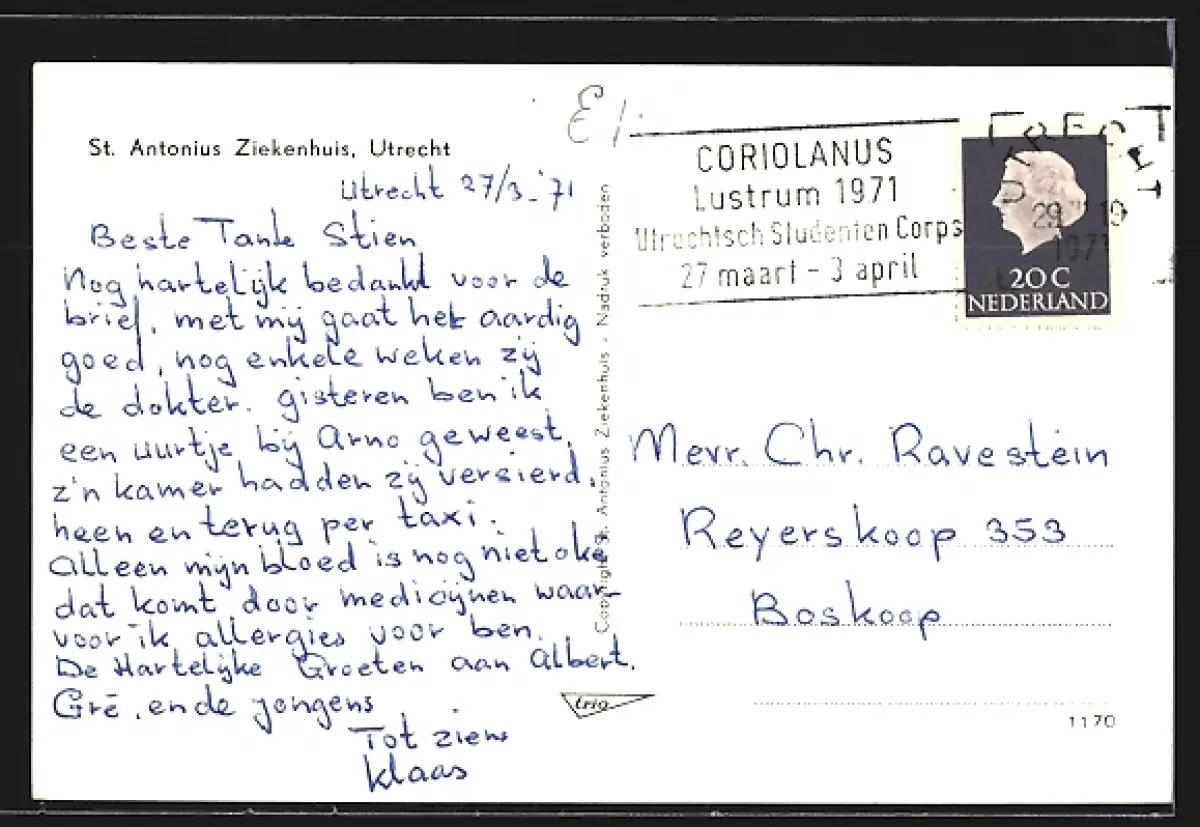 St. Antonius Ziekenhuis, Utrecht
Utrecht 27/3-'71
Beste Tante Stien
Nog hartelijk bedankt voor de
brief, met mij gaat het aardig
goed, nog enkele weken zij
de dokter. gisteren ben ik
een uurtje bij Arno geweest,
z'n kamer hadden zij versierd,
heen en terug per taxi.
Alleen mijn bloed is nog niet oke
dat komt door medicijnen waar-
voor ik allergies voor ben.
De Hartelijke Groeten aan Albert.
Gré, en de jongens
Tot ziens
Klaas
Copyright St. Antonius Ziekenhuis - Nadruk verboden
trio
CORIOLANUS
Lustrum 1971
Utrechtsch Studenten Corps
27 maart - 3 april
UTRECHT
29 19
1971
20 C
NEDERLAND
Mevr. Chr. Ravestein
Reyerskoop 353
Boskoop
1170